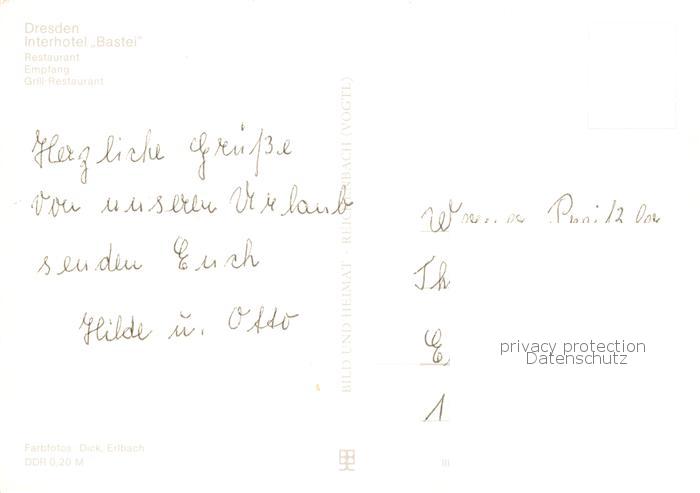 Dresden
Interhotel „Bastei"
Restaurant
Empfang
Grill-Restaurant
Herzliche Grüße
von unseren Urlaub
senden Euch
Hilde u. Otto
BILD UND HEIMAT · REICHENBACH (VOGTL)
Th
E
1
privacy protection
Datenschutz
Farbfotos: Dick, Erlbach
DDR 0,20 M
III